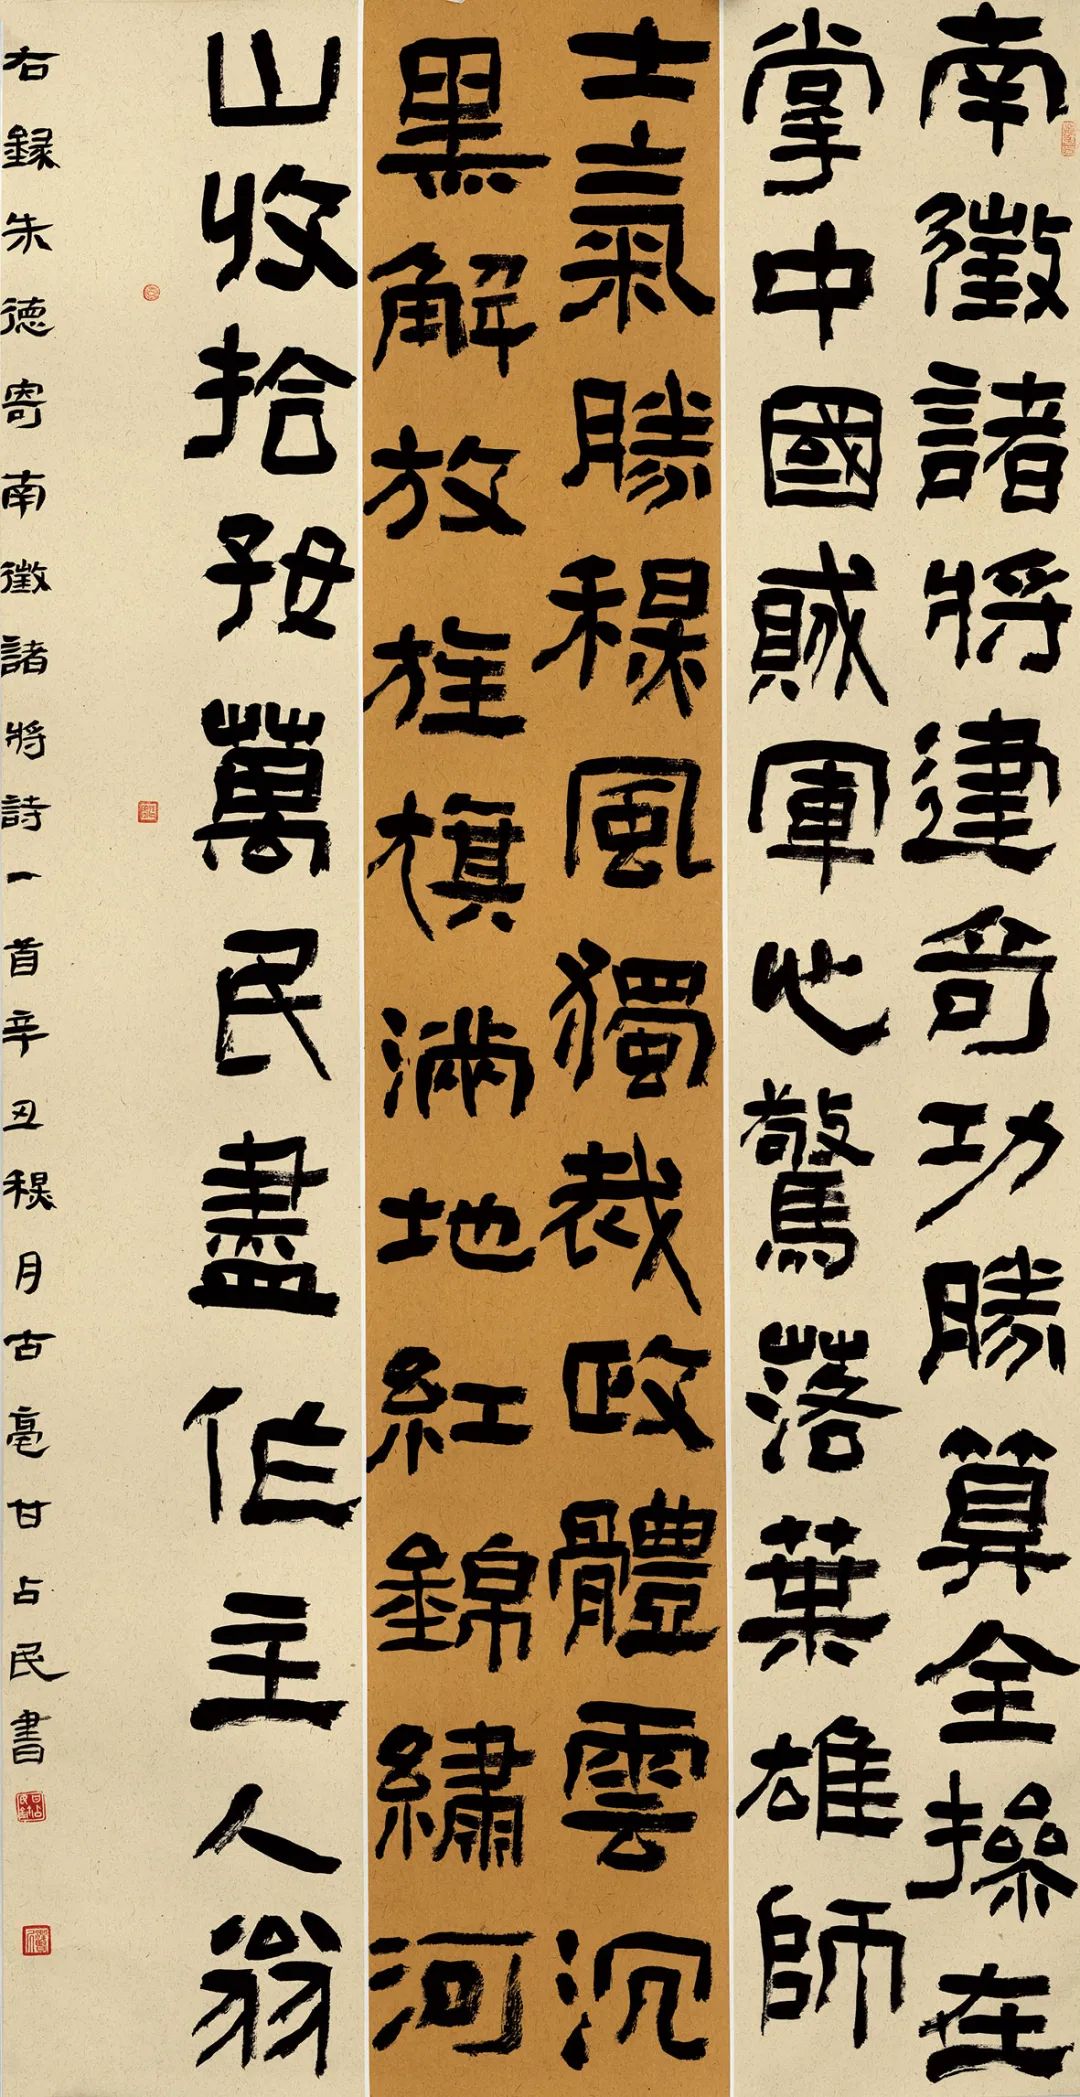 南徵諸將建奇功勝算全操在
掌中國賊軍心驚落葉雄師
士氣勝穐風獨裁政體雲沉
黑解放旌旗滿地紅錦繡河
山收拾好萬民盡作主人翁
右錄朱德寄南徵諸將詩一首辛丑穐月古亳甘占民書